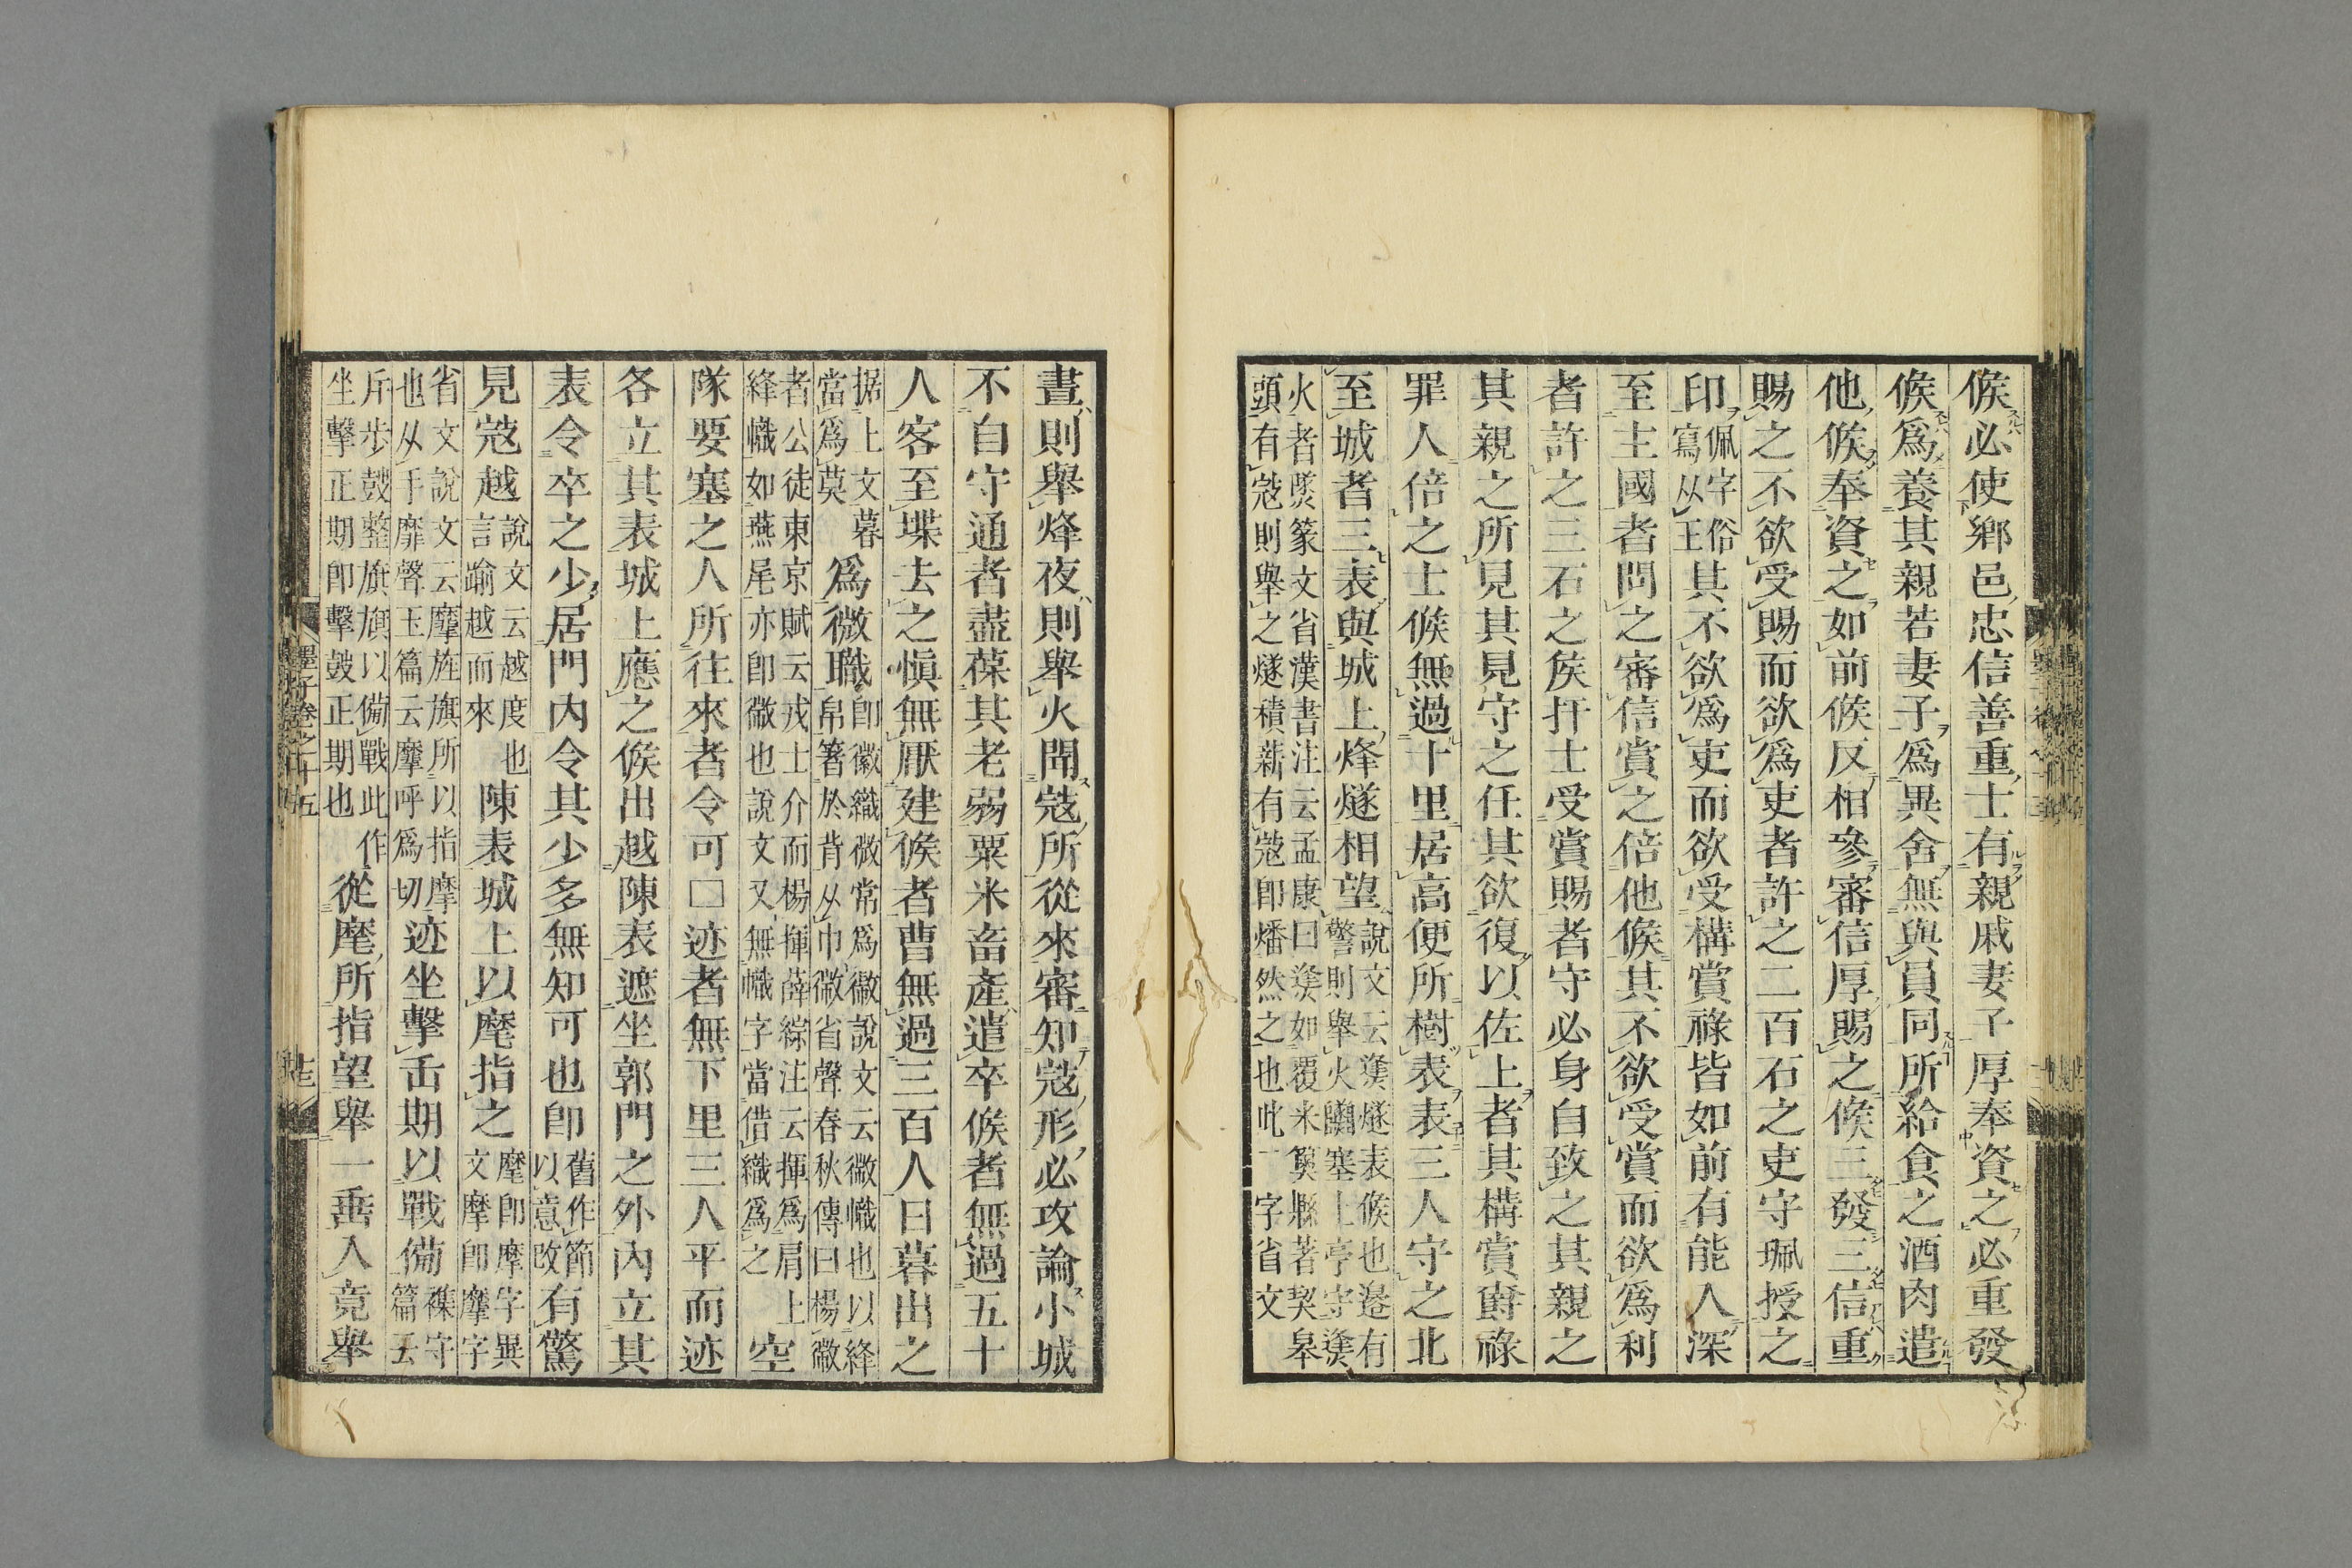 候必使鄉邑忠信善重士有親戚妻子厚奉資之必重發
候爲養其親若妻子爲異舍無與員同所給食之酒肉遣
他候奉資之如前候反相參審信厚賜之候三發三信重
賜之不欲受賜而欲爲吏者許之二百石之吏守珮授之
印佩字俗寫从王其不欲爲吏而欲受構賞祿皆如前有能入深
至主國者問之審信賞之倍他候其不欲受賞而欲爲利
者許之三石之矦扞士受賞賜者守必身自致之其親之
其親之所見其見守之任其欲復以佐上者其構賞爵祿
罪人倍之士候無過十里居高便所樹表表三人守之北
至城者三表與城上烽燧相望說文云㷭燧表候也邊有警則舉火䥜塞上亭守㷭
火者㸂篆文省漢書注云孟康曰㷭如覆米䉛縣著契皋
頭有寇則舉之燧積薪有寇即燔然之也此一字省文
晝則舉烽夜則舉火聞寇所從來審知寇形必攻論小城
不自守通者盡葆其老弱粟米畜產遣卒候者無過五十
人客至堞去之愼無厭建候者曹無過三百人日暮出之
据上文暮當爲莫爲微職即徽織微當爲徽說文云徽幟也以絳帛箸於背从巾微省聲春秋傳曰楊徽
者公徒東京賦云戎士介而楊揮薛綜注云揮爲肩上絳幟如燕尾亦即徽也說文又無幟字當借織爲之空
隊要塞之人所往來者令可□迹者無下里三人平而迹
各立其表城上應之候出越陳表遮坐郭門之外內立其
表令卒之少居門內令其少多無知可也即舊作節以意改有驚
見寇越說文云越度也言踰越而來陳表城上以麾指之麾即摩字異文摩即摩字
省文說文云麾旌旗所以指麾也从手靡聲玉篇云摩呼爲切迹坐擊缶期以戰備襍守篇云
斥步鼓整旗旗以備戰此作坐擊正期即擊鼓正期也從麾所指望舉一垂入竟舉
墨子卷之十五